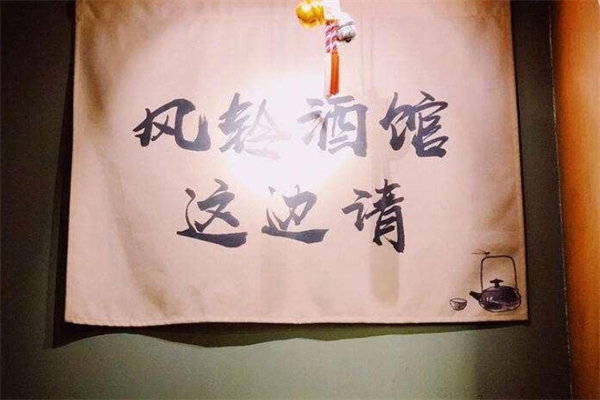 风酒馆
这边请